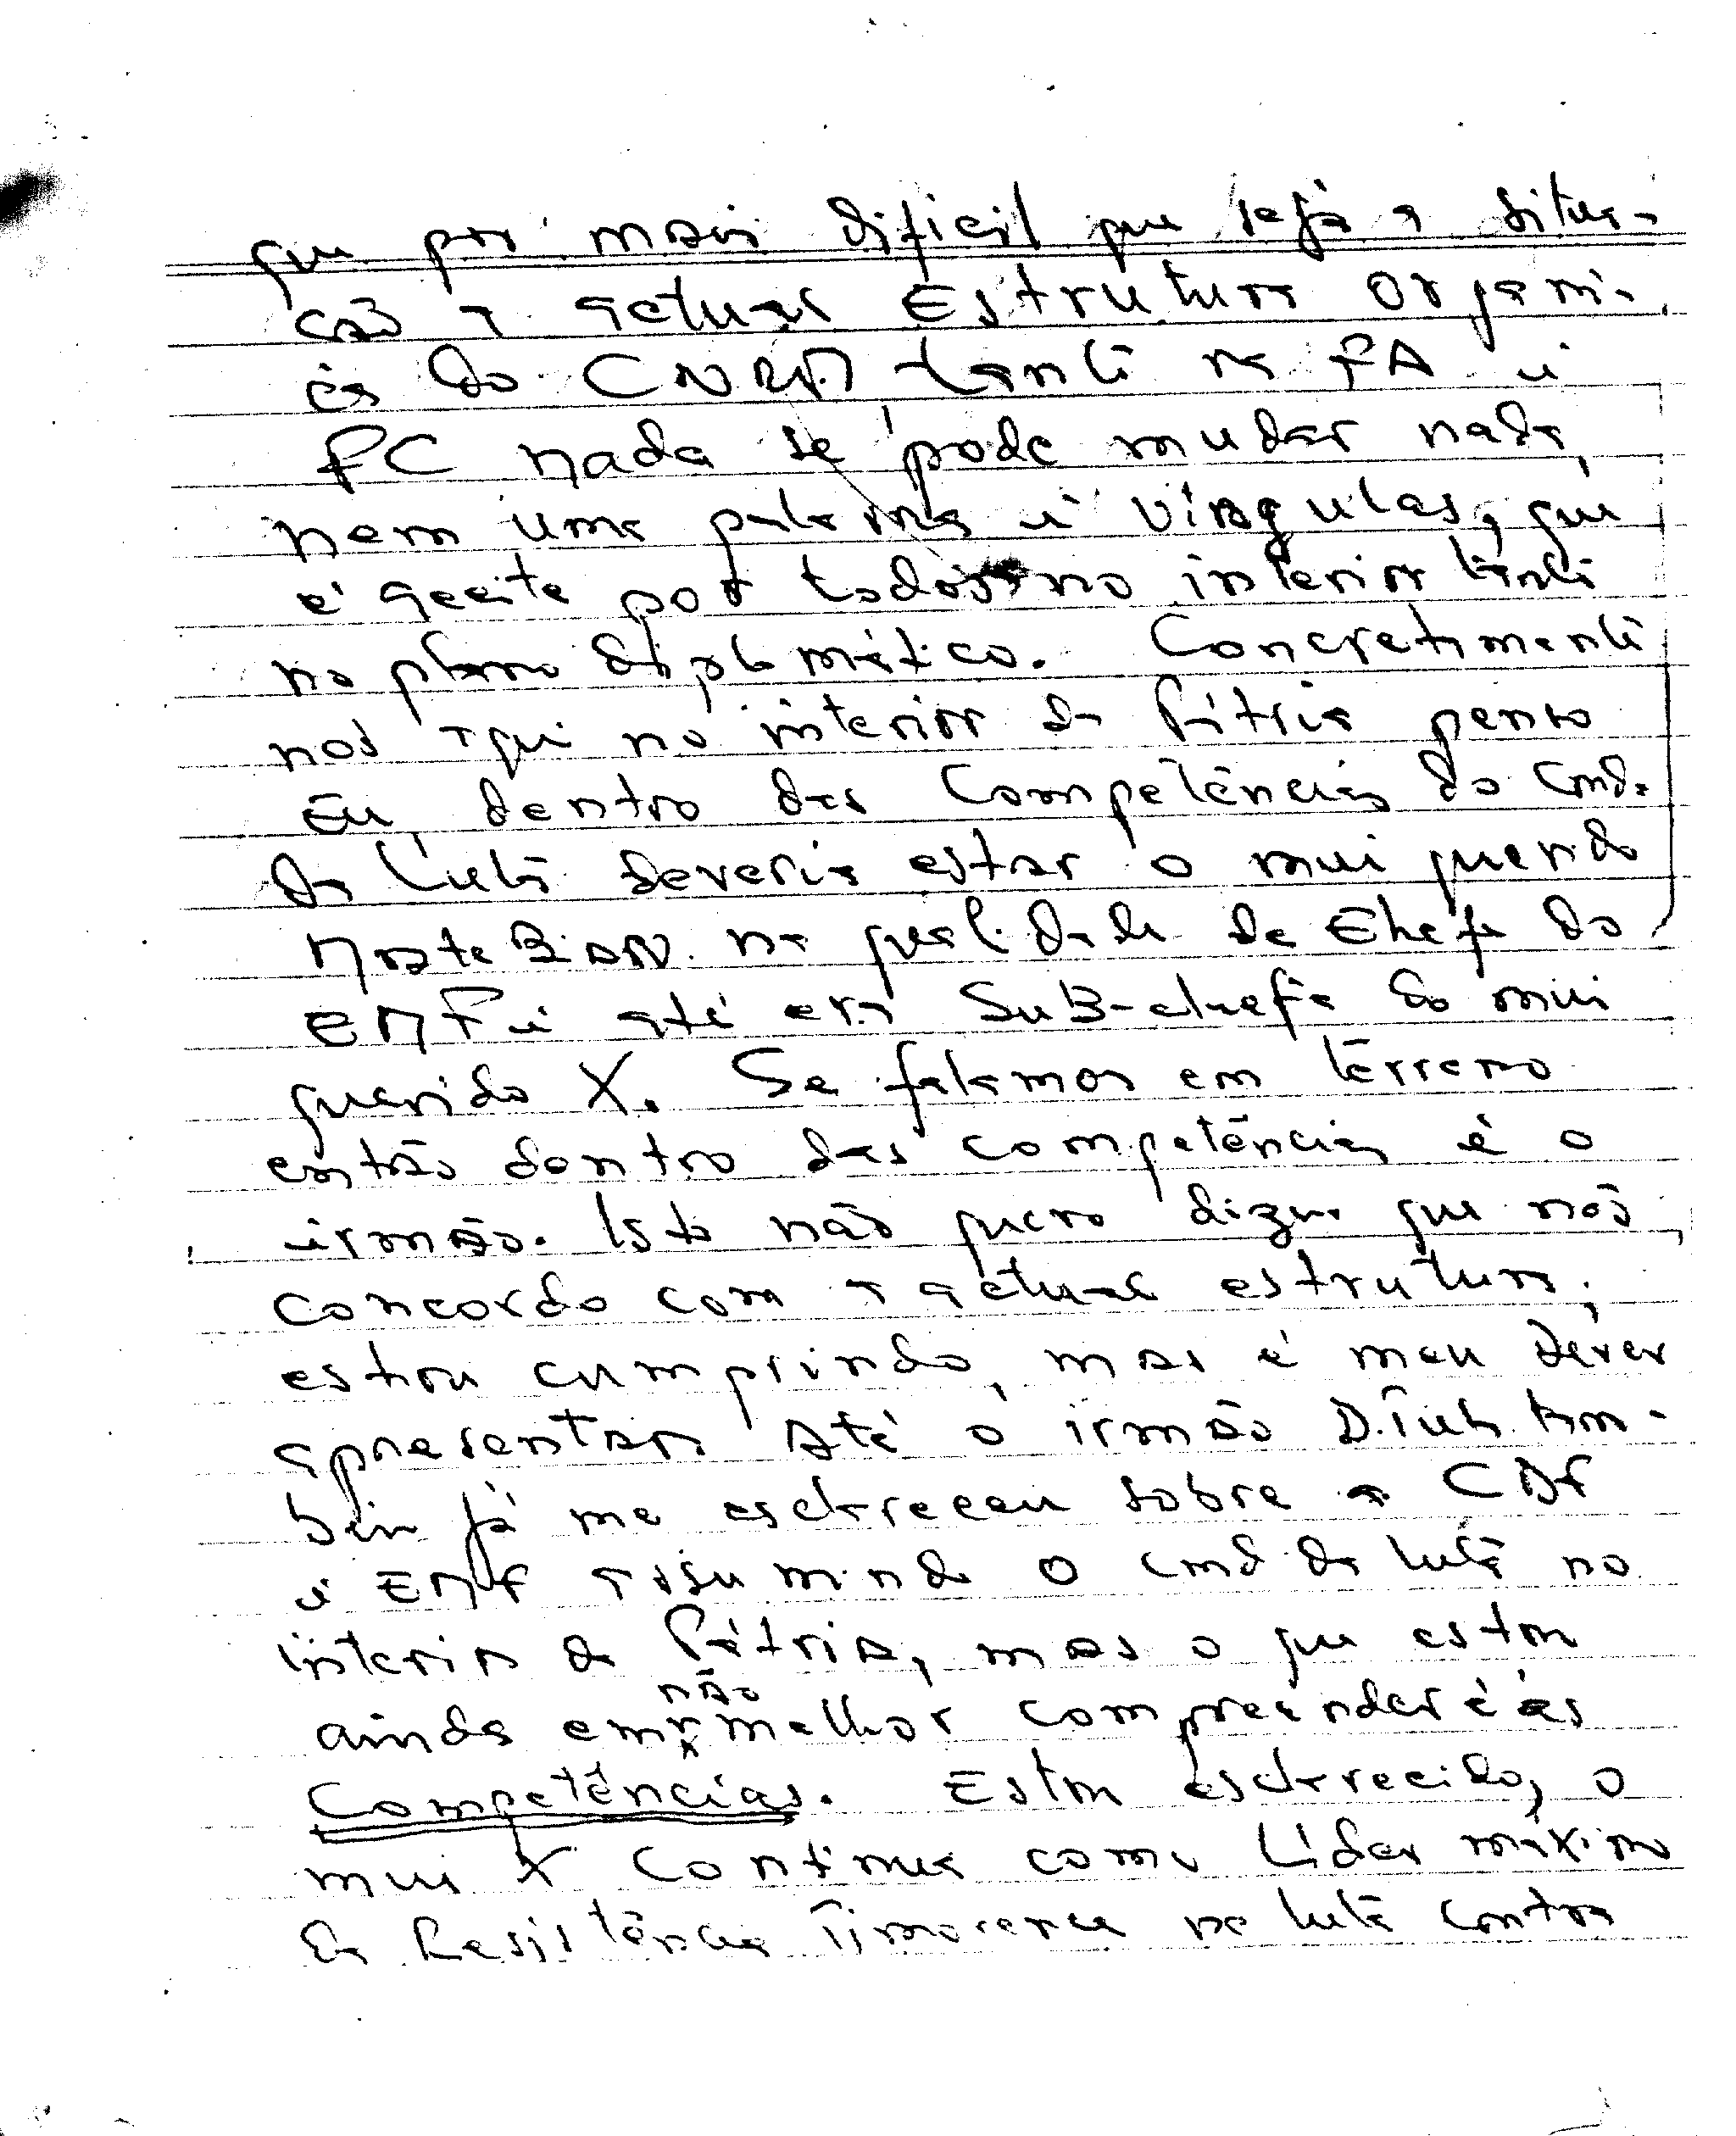 que por mais dificil que seja a situa-
ção a actual Estrutura Orgâni-
ca do CNRM tanto na FA e
FC nada se pode mudar nada,
nem uma palavra e vírgulas, que
é aceite por todos no interior tanto
no plano diplomático. Concretamente
nós aqui no interior da Pátria penso
Eu, dentro das Competências do Cmd.
da Luta deveria estar o mui querido
na qualidade de Chefe do
EMF e até era Sub-chefe do mui
querido X. Se falamos em terreno
então dentro das competências é o
irmão. Isto não quero dizer que nós
concordo com a actual estrutura,
estou cumprindo, mas é meu dever
apresentar. Até o irmão D. Tuln. tam-
bem já me esclareceu sobre a CDF
e EMF assumindo o Cmd da luta no
interior da Pátria, mas o que estou
ainda em não melhor compreender é as
Competências. Estou esclarecido, o
mui X continua como Líder máximo
da Resistência Timorense na luta contra